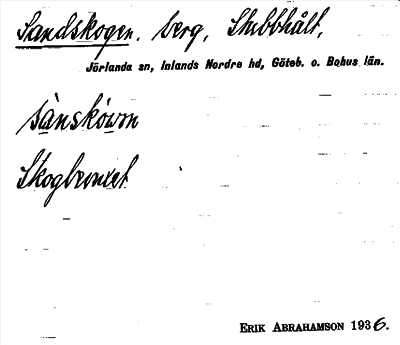 Sandskogen. berg, Stubbhålt,
Jörlanda sn, Inlands Nordre hd, Göteb. o. Bohus län.
sànskówm
Skogbevuxet
ERIK ABRAHAMSON 1936.